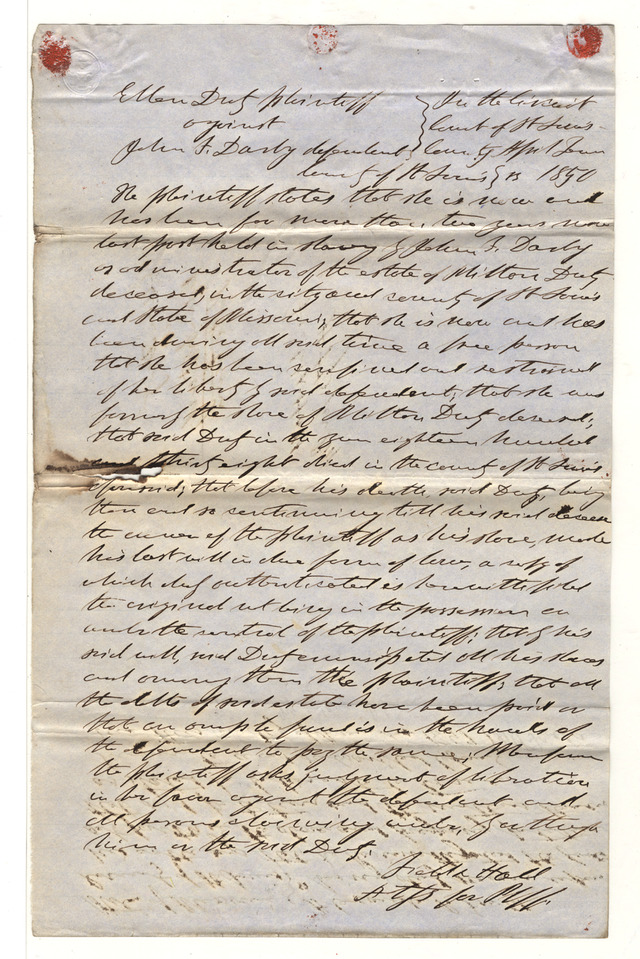 Ellen Duty plaintiff } In the Circuit
against } Court of St Louis
John F. Darby defendant } County April Term
County of St Louis } 1850
The plaintiff states that she is now and
has been for more than two years now
last past held in slavery by John F. Darby
as administrator of the estate of Milton Duty
deceased, in the city and county of St Louis
and State of Missouri; that she is now and has
been during all said time a free person
that she has been confined and restrained
of her liberty by said defendant; that she was
formerly the slave of Milton Duty deceased;
that said Duty in the year eighteen hundred
and thirty eight died in the county of St Louis
aforesaid; that before his death said Duty being
then and so continuing till his said decease
the owner of the plaintiff as his slave, made
his last will in due form of law, a copy of
which duly authenticated is herewith filed
the original not being in the possession or
under the control of the plaintiff; that by his
said will, said Duty emancipated all his slaves
and among them the plaintiff; that all
the debts of said estate have been paid or
that an ample fund is in the hands of
the defendant to pay the same; Wherefore
the plaintiff asks judgment of liberation
in her favor against the defendant and
all persons claiming under, by or through
him or the said Duty.
Field & Hall
Attys for Plff.